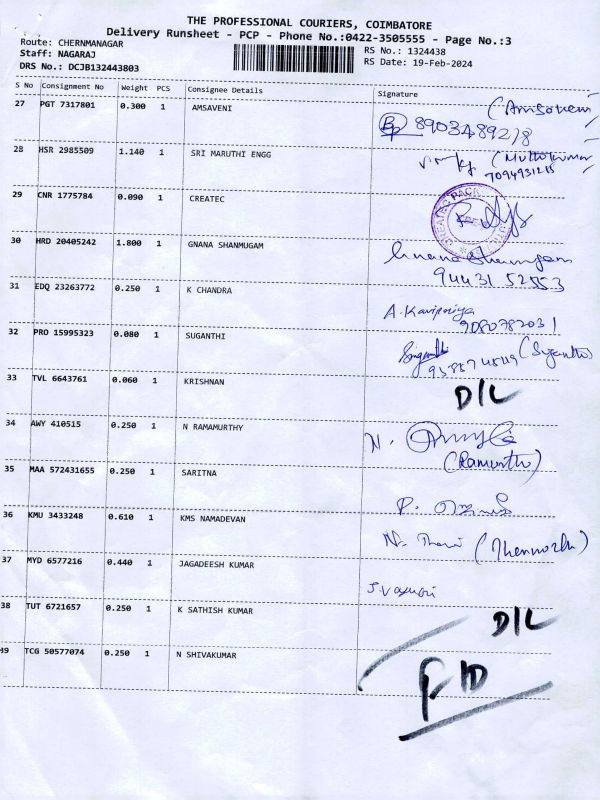 THE PROFESSIONAL COURIERS, COIMBATORE
Delivery Runsheet - PCP - Phone No.:0422-3505555 - Page No.:3
Route: CHERNMANAGAR
Staff: NAGARAJ
DRS No.: DCJB132443803
RS No.: 1324438
RS Date: 19-Feb-2024
S No Consignment No Weight PCS Consignee Details Signature
27 PGT 7317801 0.300 1 AMSAVENI
8903489218
28 HSR 2985509 1.140 1 SRI MARUTHI ENGG (Muthukumar
7094931215
29 CNR 1775784 0.090 1 CREATEC
30 HRD 20405242 1.800 1 GNANA SHANMUGAM Gnana Shanmugam
94431 52553
31 EDQ 23263772 0.250 1 K CHANDRA A. Kavipriya
9080782031
32 PRO 15995323 0.080 1 SUGANTHI (Suganthi)
33 TVL 6643761 0.060 1 KRISHNAN D/L
34 AWY 410515 0.250 1 N RAMAMURTHY N.
(Ramurthi)
35 MAA 572431655 0.250 1 SARITNA P.
36 KMU 3433248 0.610 1 KMS NAMADEVAN
37 MYD 6577216 0.440 1 JAGADEESH KUMAR
38 TUT 6721657 0.250 1 K SATHISH KUMAR D/L
39 TCG 50577074 0.250 1 N SHIVAKUMAR